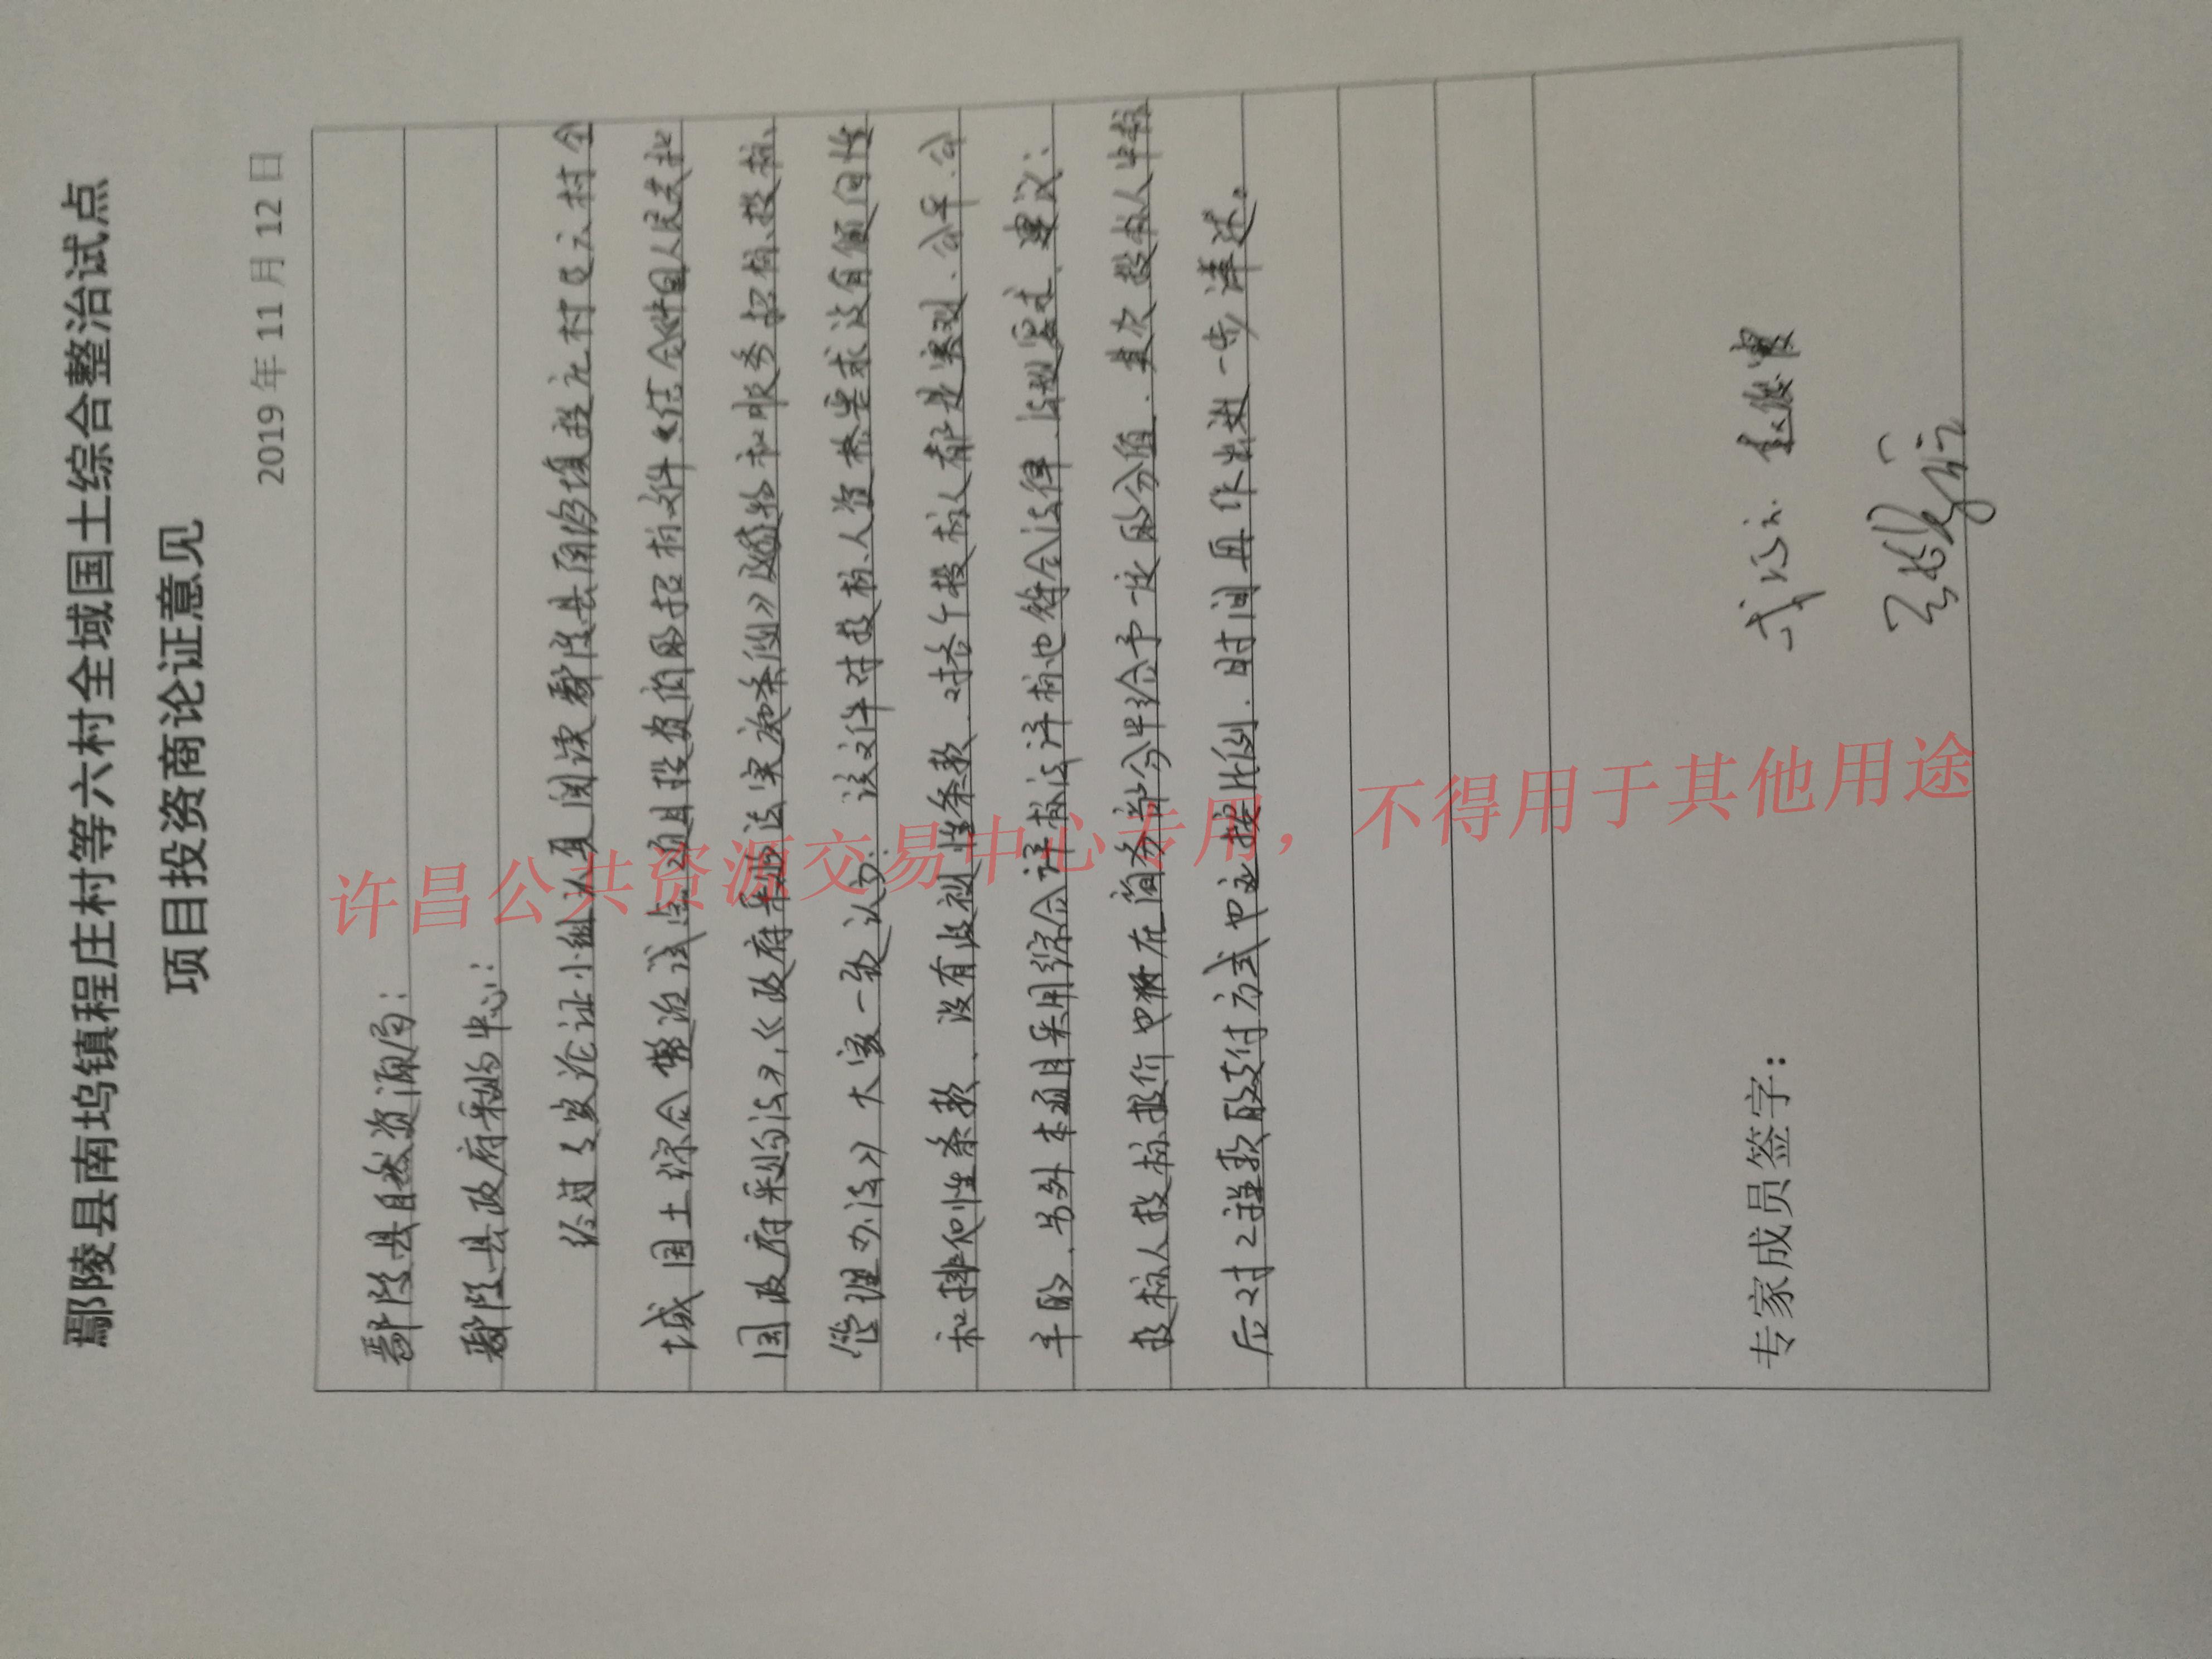 鄢陵县南坞镇程庄村等六村全域国土综合整治试点
项目投资商论证意见
2019年11月12日
鄢陵县自然资源局：
鄢陵县政府采购中心：
经过专家论证小组认真阅读鄢陵县南坞镇程庄村等六村全
域国土综合整治试点项目投资商的招标文件，结合《中国人民共和
国政府采购法》，《政府采购法实施条例》及《货物和服务招标、投标、
管理办法》大家一致认为：该文件对投标人资格要求没有倾向性
和排他性条款、没有歧视性条款、对各个投标人都是客观、公平、公
平的，另外本项目采用综合评标法评标也符合法律、法规要求，建议：
投标人投标报价中标在商务部分中给予一定的分值，其次投标人中标
后对工程款的支付方式中应按比例、时间再作出进一步详述。
专家成员签字：
许昌公共资源交易中心专用，不得用于其他用途